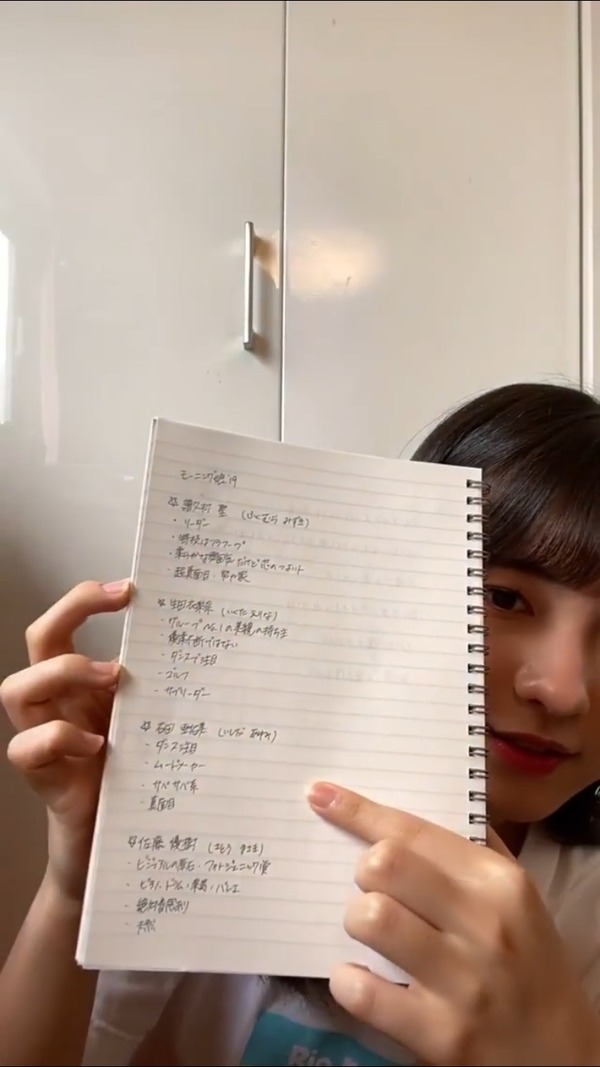 モーニング娘。'19
☆ 譜久村 聖 (ふくむら みずき)
・リーダー
・特技はフラフープ
・柔らかな雰囲気だけど芯のつよい
・超真面目・
☆ 生田衣梨奈 (いくた えりな)
・グループNo.1の美貌の持ち主
・優柔不断ではない
・ダンスで注目
・ゴルフ
・サブリーダー
☆ 石田 亜佑美 (いしだ あゆみ)
・ダンス注目
・ムードメーカー
・サバサバ系
・真面目
☆ 佐藤 優樹 (さとう まさき)
・ビジュアルの原石・フォトジェニック賞
・ピアノ・ドラム・・バレエ
・絶対音感
・天然
Rio